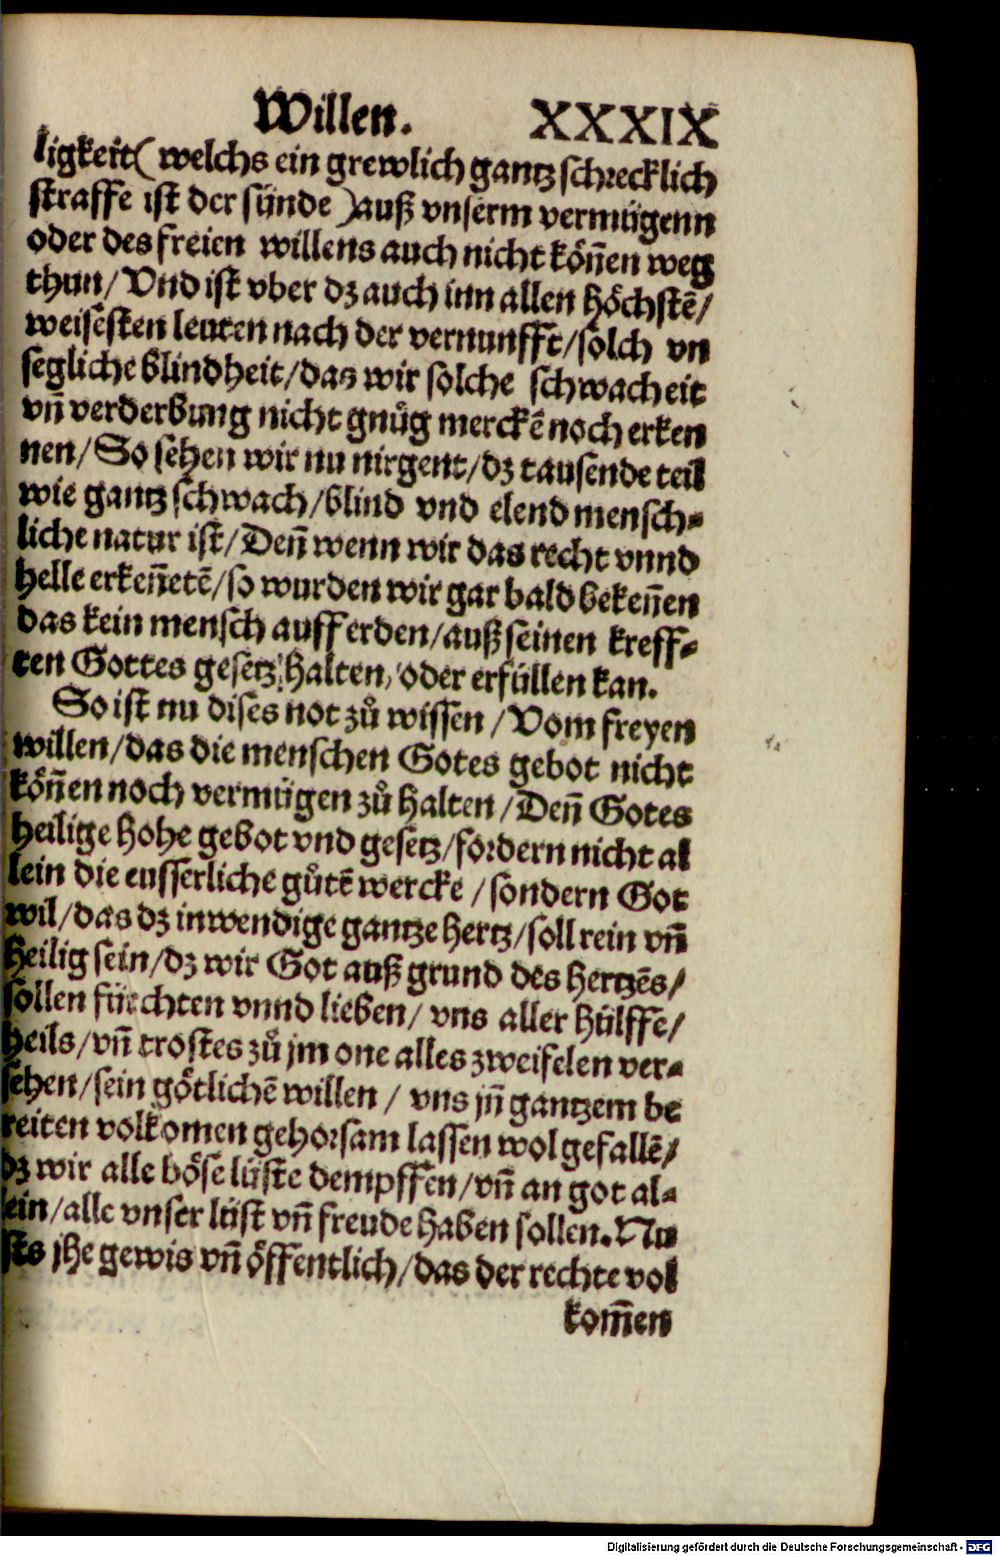 Willen. XXXIX
ligkeit( welchs ein grewlich gantz schrecklich
straffe ist der sünde )auß vnserm vermügenn
oder des freien willens auch nicht köñen weg
thun/ Vnd ist vber dz auch inn allen höchstē/
weisesten leuten nach der vernunfft/ solch vn
segliche blindheit/ das wir solche schwacheit
vñ verderbung nicht gnůg merckē noch erken
nen/ So sehen wir nu nirgent/ dz tausende teil
wie gantz schwach/ blind vnd elend mensch⸗
liche natur ist/ Deñ wenn wir das recht vnnd
helle erkeñetē/ so wurden wir gar bald bekeñen
das kein mensch auff erden/ auß seinen kreff⸗
ten Gottes gesetz halten/ oder erfüllen kan.
So ist nu dises not zů wissen / Vom freyen
willen/ das die menschen Gotes gebot nicht
köñen noch vermügen zů halten / Deñ Gotes
heilige hohe gebot vnd gesetz/ fordern nicht al
lein die eusserliche gůtē wercke / sondern Got
wil/ das dz inwendige gantze hertz/ soll rein vñ
heilig sein/ dz wir Got auß grund des hertzēs/
sollen fürchten vnnd lieben/ vns aller hülffe/
heils/ vñ trostes zů jm one alles zweifelen ver⸗
sehen/ sein götlichē willen / vns jñ gantzem be
reiten volkomen gehorsam lassen wolgefallē/
dz wir alle böse lüste dempffen/ vñ an got al⸗
lein/ alle vnser lüst vñ freude haben sollen. Nu
ists jhe gewis vñ öffentlich/ das der rechte vol
kom̃en
Digitalisierung gefördert durch die Deutsche Forschungsgemeinschaft - DFG